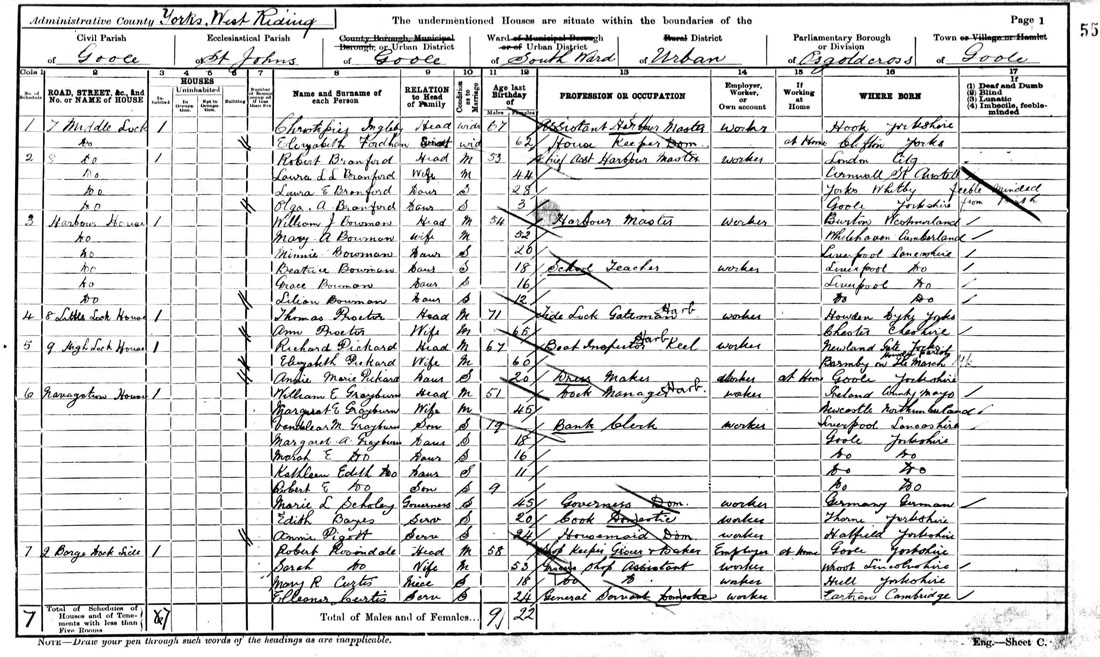 Administrative County Yorks, West Riding The undermentioned Houses are situate within the boundaries of the Page 1
55
Civil Parish Ecclesiastical Parish County Borough, Municipal Borough, or Urban District Ward of Municipal Borough or of Urban District Rural District Parliamentary Borough or Division Town or Village or Hamlet
of Goole of St Johns of Goole of South Ward of Urban of Osgoldcross of Goole
Cols 1 2 3 4 5 6 7 8 9 10 11 12 13 14 15 16 17
No. of Schedule ROAD, STREET, &c., and No. or NAME of HOUSE HOUSES Inhabited Uninhabited In Occupation Not in Occupation Building Name and Surname of each Person RELATION to Head of Family Condition as to Marriage Age last Birthday of Males Females PROFESSION OR OCCUPATION Employer, Worker, or Own account If Working at Home WHERE BORN If (1) Deaf and Dumb (2) Blind (3) Lunatic (4) Imbecile, feeble-minded
1 7 Middle Lock 1 Ingleby Head wid 67 Assistant Harbour Master worker Hook Yorkshire
Do Elizabeth Fordham wid 62 House Keeper Dom at Home Clifton Yorks
2 8 Do 1 Robert Branford Head M 53 Chief Asst Harbour Master worker London City
Do Laura S L Branford Wife M 44 Cornwall St Austell
Do Laura E Branford Daur S 28 Yorks Whitby feeble minded
Do Olga A Branford Daur S 3 Goole Yorkshire from
3 Harbour House 1 William J Bowman Head M 54 Harbour Master worker Burton Westmorland
Do Mary A Bowman wife M 52 Whitehaven Cumberland
Do Minnie Bowman Daur S 20 Liverpool Lancashire
Do Beatrice Bowman Daur S 18 School Teacher worker Liverpool Do
Do Grace Bowman Daur S 16 Liverpool Do
Do Lilian Bowman Daur S 12 Do Do
4 8 Little Lock House 1 Thomas Procter Head M 71 Tide Lock Gateman Harb. worker Howden Dyke Yorks
Ann Procter Wife M 65 Chester Cheshire
5 9 High Lock House 1 Richard Pickard Head M 67 Boat Inspector Harb Keel worker Newland Yorks
Elizabeth Pickard Wife M 60 Barmby on the Marsh
Annie Marie Pickard Daur S 20 Dress Maker Worker at Home Goole Yorkshire
6 Navagation House 1 William E Grayburn Head M 51 Dock Manager Harb. worker Ireland County Mayo
Margaret E Grayburn Wife M 45 Newcastle Northumberland
M. Grayburn Son S 19 Bank Clerk worker Liverpool Lancashire
Margaret A. Grayburn Daur S 18 Goole Yorkshire
E Do Daur S 16 Do Do
Kathleen Edith Do Daur S 11 Do Do
Robert E Do Son S 9 Do Do
Marie L Scholey Governess S 45 Governess Dom. worker Germany German
Edith Bayes Serv S 20 Cook Domestic worker Thorne Yorkshire
Annie Pigott Serv S 24 Housemaid Dom worker Hatfield Yorkshire
7 2 Barge Dock Side 1 Robert Head M 58 Shop Keeper Grocer & Baker Employer at home Goole Yorkshire
Sarah Do Wife M 53 Grocers Shop Assistant worker Wroot Lincolnshire
Mary R Curtis Niece S 18 Do worker Hull Yorkshire
Elleanor Curtis Serv S 24 General Servant Domestic worker Cambridge
7 Total of Schedules of Houses and of Tenements with less than Five Rooms 7 Total of Males and of Females... 9 22
NOTE—Draw your pen through such words of the headings as are inapplicable. Eng.—Sheet C.